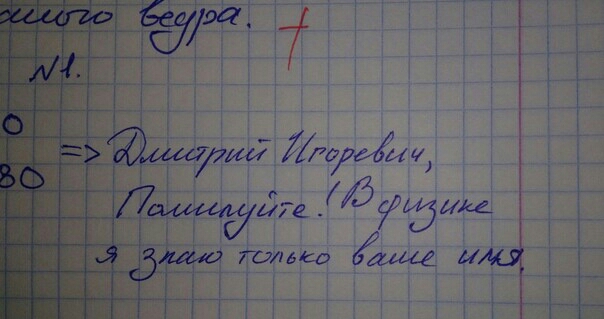 ведра.
№1.
0
80
=> Дмитрий Игоревич,
Помилуйте! В физике
я знаю только ваше имя.